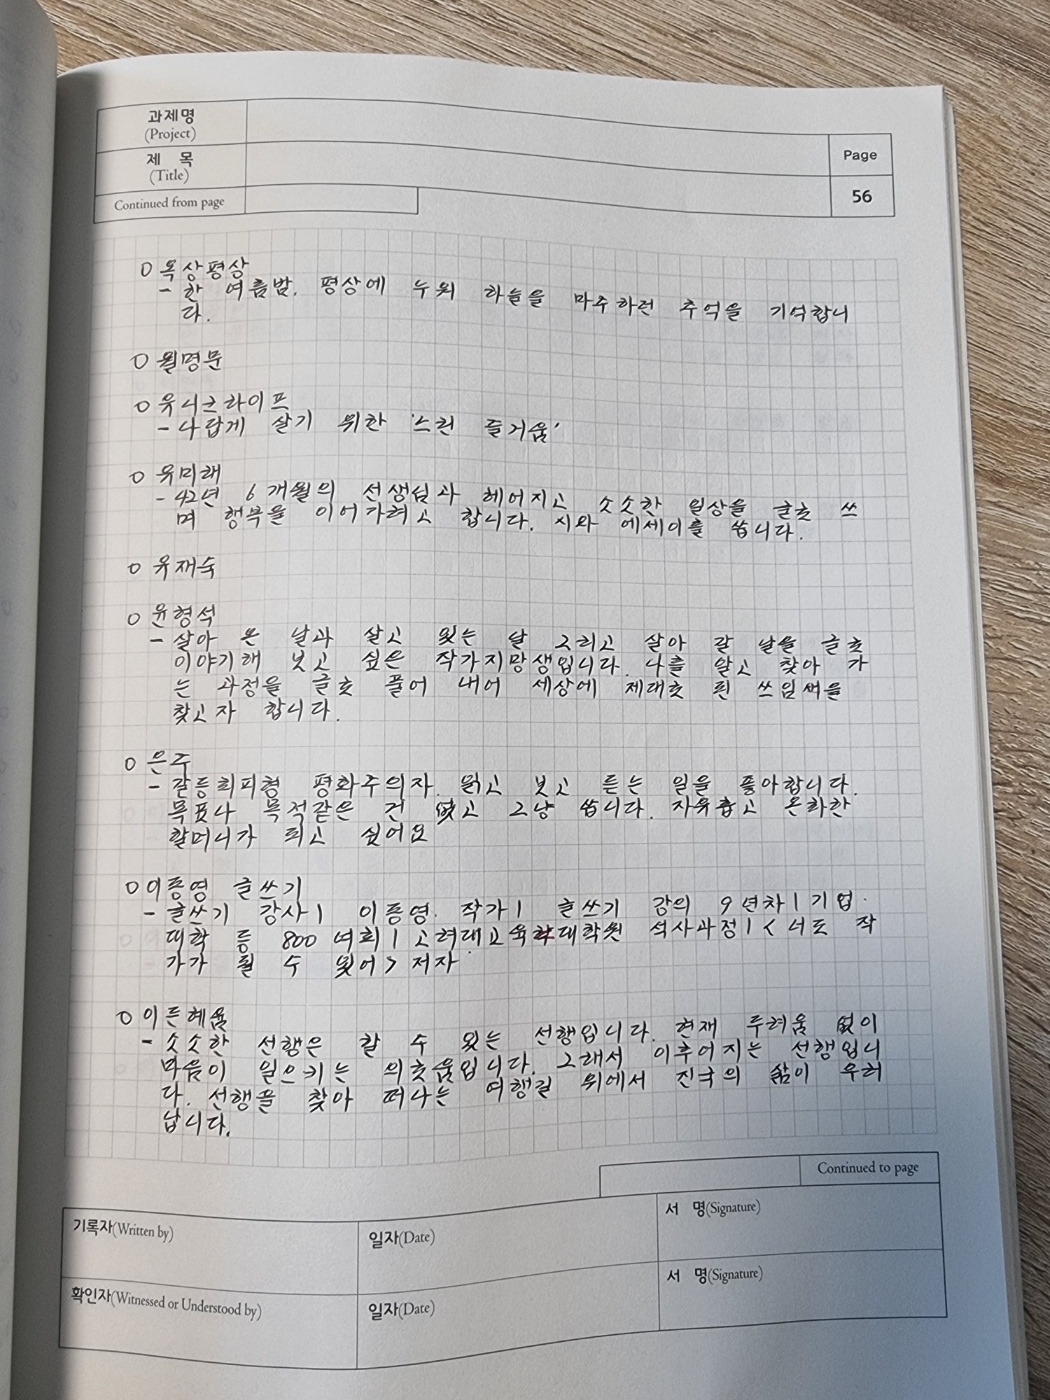 과제명
(Project)
제 목
(Title)
Page
Continued from page
56
○ 옥상평상
- 한 여름밤. 평상에 누워 하늘을 마주하련 추억을 기억합니
다.
○ 월명문
○ 유니크라이프
- 나답게 살기 위한 '느린 즐거움'
○ 유미래
- 42년 6개월의 선생님과 헤어지고 소소한 일상을 글로 쓰
며 행복을 이어가려고 합니다. 시와 에세이를 씁니다.
○ 유재숙
○ 윤형석
- 살아 온 날과 살고 있는 날 그리고 살아 갈 날을 글로
이야기해 보고 싶은 작가지망생입니다. 나를 알고 찾아 가
는 과정을 글로 풀어 내어 세상에 제대로 된 쓰임새를
찾고자 합니다.
○ 은주
- 갈등회피형 평화주의자. 읽고 보고 듣는 일을 좋아합니다.
목표나 목적같은 건 없고 그냥 씁니다. 자유롭고 온화한
할머니가 되고 싶어요
○ 이종영 글쓰기
- 글쓰기 강사 | 이종영. 작가 | 글쓰기 강의 9년차 | 기업·
대학 등 800여회 | 고려대교육대학원 석사과정 | <너도 작
가가 될 수 있어> 저자
○ 이든혜윰
- 소소한 선행은 할 수 있는 선행입니다. 현재 두려움 없이
마음이 일으키는 의로움입니다. 그래서 이루어지는 선행입니
다. 선행을 찾아 떠나는 여행길 위에서 진국의 삶이 우러
납니다.
Continued to page
기록자(Written by)
일자(Date)
서 명(Signature)
확인자(Witnessed or Understood by)
일자(Date)
서 명(Signature)